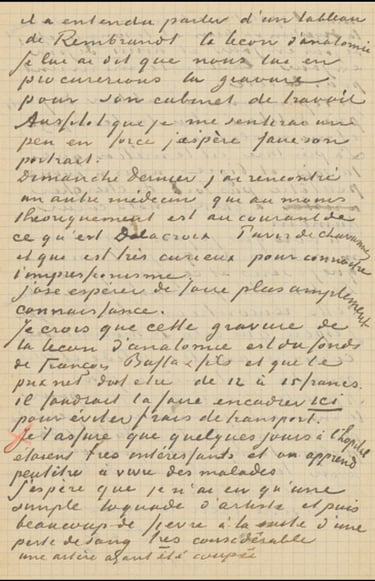 il a entendu parler d'un tableau
de Rembrandt la leçon d'anatomie
Je lui ai dit que nous lui en
procurerions la gravure
pour son cabinet de travail
Aussitôt que je me sentirai une
peu en force j'espère faire son
portrait.
Dimanche dernier j'ai rencontré
un autre médecin que au moins
théoriquement est au courant de
ce qu'est Delacroix Puvis de Chavannes
et que est très curieux pour connaître
l'impressionisme.
j'ose espérer de faire plus amplement
connaissance.
Je crois que cette gravure de
la lecon d'anatomie est du fonds
de François Buffa & fils et que le
prix net doit etre de 12 à 15 francs.
il faudrait la faire encadrer ici
pour éviter frais de transport.
Je t'assure que quelques jours à l'hopital
etaient tres intéressants et on apprend
peutêtre à vivre des malades
J'espère que je n'ai eu qu'une
simple toquade d'artiste et puis
beaucoup de fievre à la suite d'une
perte de sang tres considérable
une artère ayant été coupée